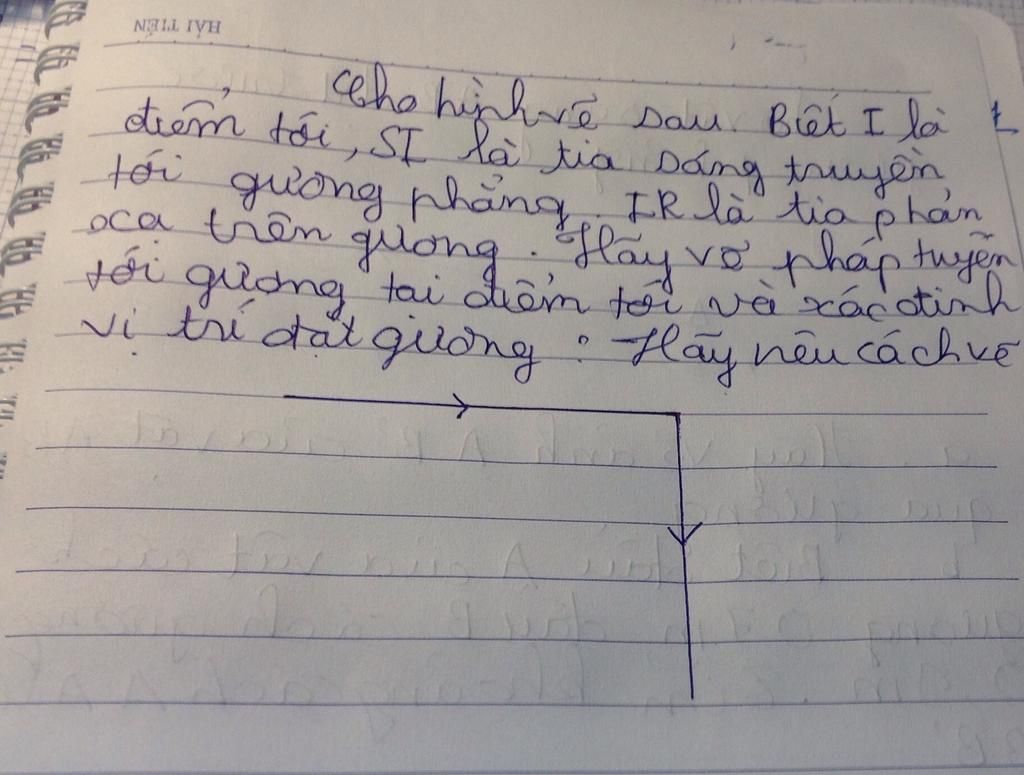 HẢI TIẾN
Cho hình vẽ sau. Biết I là
điểm tới, SI là tia sáng truyền
tới gương phẳng. IR là tia phản
xạ trên gương. Hãy vẽ pháp tuyến
tới gương tại điểm tới và xác định
vị trí đặt gương : Hãy nêu cách vẽ